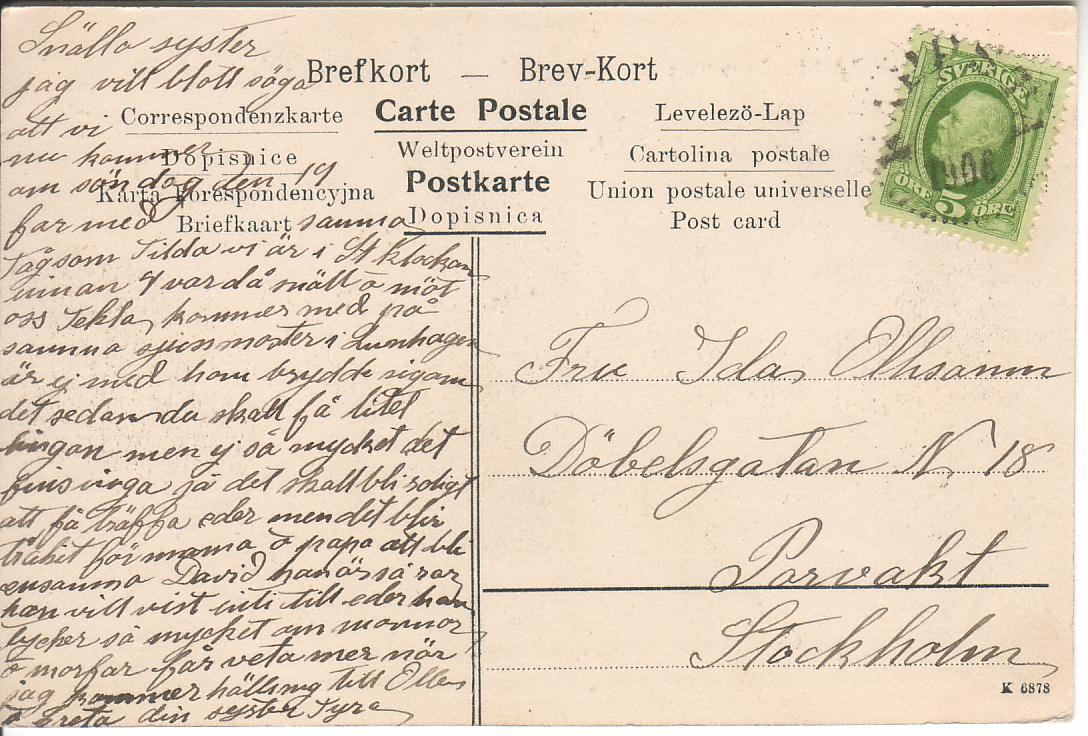 Snälla syster
jag vill blott säga
att vi
nu kommer
om söndag den 19
far med samma
Tåg som Tilda vi är i St klockan
innan 4 var då snäll o möt
oss Tekla kommer med på
samma
är ej med hon brydde sig om
det sedan du skall få litet
lingon men ej så mycket det
fins inga ja det skall bli roligt
att få träffa eder men det blir
tråkit för mama o papa att bli
ensamma David han är så rar
han vill vist inti till eder han
tycker så mycket om mormor
o morfar får veta mer när
jag kommer hälsning till Olle
o Greta din syster Tyra
Brefkort — Brev-Kort
Correspondenzkarte Carte Postale Levelezö-Lap
Dopisnice Weltpostverein Cartolina postale
Karta korespondencyjna Postkarte Union postale universelle
Briefkaart Dopisnica Post card
SVERIGE
1906
ÖRE 5 ÖRE
Fru Ida
Döbelsgatan N 18
Porvakt
Stockholm
K 6878